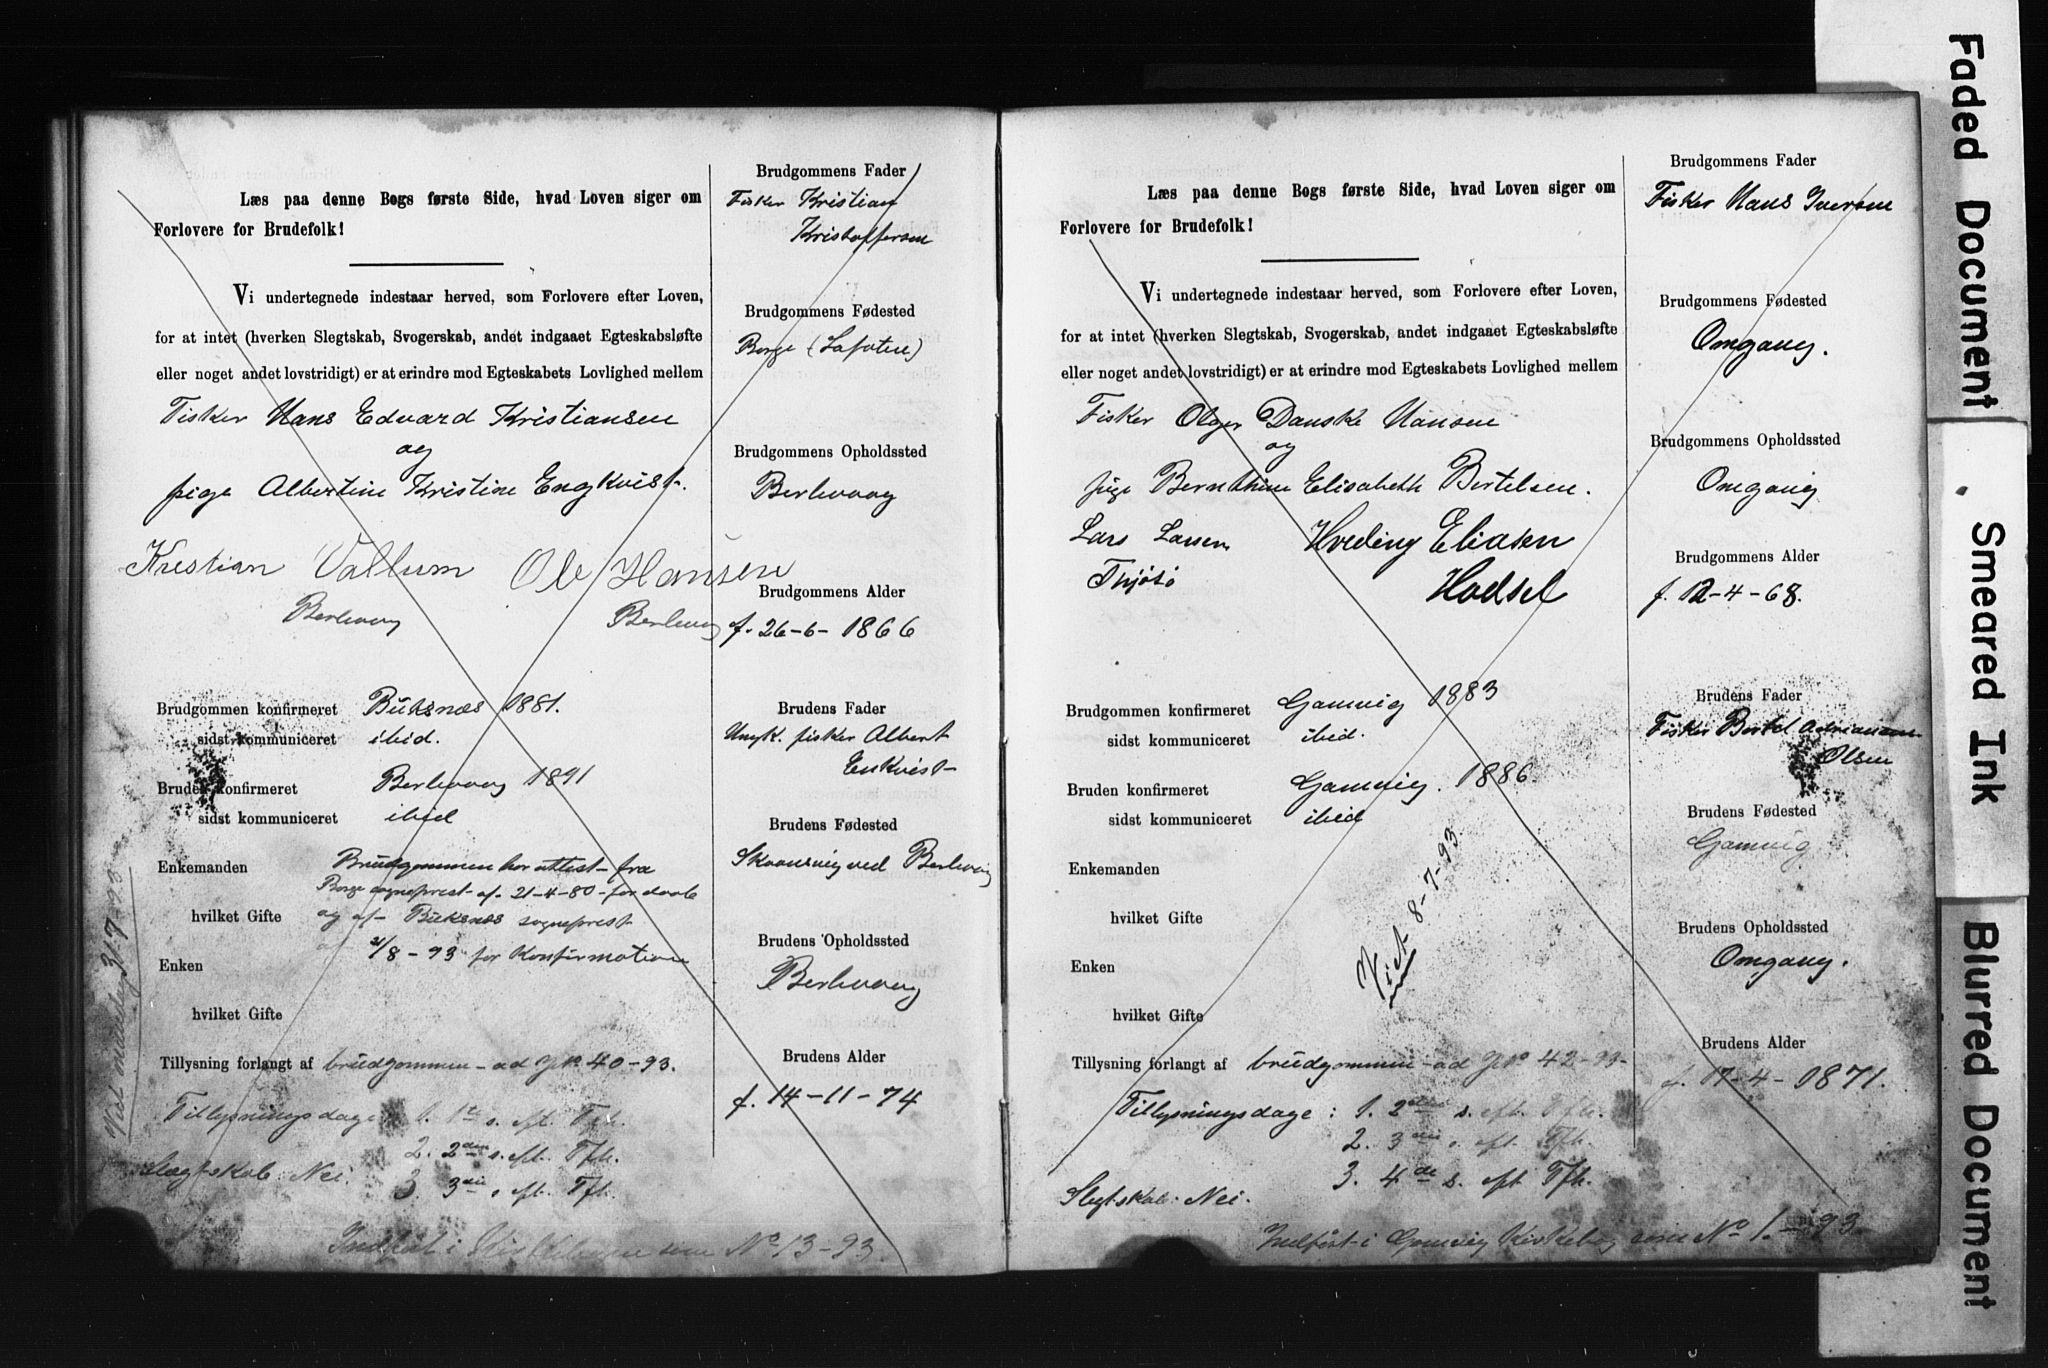 Læs paa denne Bogs første Side, hvad Loven siger om
Forlovere for Brudefolk!
Vi undertegnede indestaar herved, som Forlovere efter Loven,
for at intet (hverken Slegtskab, Svogerskab, andet indgaaet Egteskabsløfte
eller noget andet lovstridigt) er at erindre mod Egteskabets Lovlighed mellem
Fisker Hans Edvard Kristiansen
og
pige Albertine Kristine Engkvist.
Kristian Vallum Ole Hansen
Berlevaag Berlevaag
Brudgommen konfirmeret Buksnæs 1881.
sidst kommuniceret ibid.
Bruden konfirmeret Berlevaag 1891
sidst kommuniceret ibid
Enkemanden Brudgommen har attest fra
Borge sogneprest af 21-4-80 for daab
hvilket Gifte og af Buksnæs sogneprest
21/8-93 for Konfirmation
Enken
hvilket Gifte
Tillysning forlangt af brudgommen - ad 40-93.
Tillysningsdage 1. 1te s. eft. Tfh.
2. 2den s. eft. Tfh.
Slægtskab: Nei.
3. 3die s. eft. Tfh.
Indført i Kirkebogen som No 13-93.
Viet mandag 31-7-93
Brudgommens Fader
Fisker Kristian
Kristoffersen
Brudgommens Fødested
Borge (Lofoten)
Brudgommens Opholdssted
Berlevaag
Brudgommens Alder
f. 26-6-1866
Brudens Fader
Ungk. fisker Albert
Enkvist
Brudens Fødested
Skonsvig ved Berlevaag
Brudens Opholdssted
Berlevaag
Brudens Alder
f. 14-11-74
Læs paa denne Bogs første Side, hvad Loven siger om
Forlovere for Brudefolk!
Vi undertegnede indestaar herved, som Forlovere efter Loven,
for at intet (hverken Slegtskab, Svogerskab, andet indgaaet Egteskabsløfte
eller noget andet lovstridigt) er at erindre mod Egteskabets Lovlighed mellem
Fisker Olger Danske Hansen
og
pige Bernthine Elisabeth Bertelsen.
Lars Larsen Hveding Eliasen
Thjøtø Hadsel
Brudgommen konfirmeret Gamvig 1883
sidst kommuniceret ibid.
Bruden konfirmeret Gamvig. 1886.
sidst kommuniceret ibid
Enkemanden
hvilket Gifte
Viet 8-7-93.
Enken
hvilket Gifte
Tillysning forlangt af brudgommen - ad 42-93-
Tillysningsdage: 1. 2den s. eft. Tfh.
2. 3die s. eft. Tfh.
3. 4de s. eft Tfh.
Slegtskab: Nei.
Indført i Gamvig Kirkebog som No 1.-93-
Brudgommens Fader
Fisker Hans Iversen
Brudgommens Fødested
Omgang.
Brudgommens Opholdssted
Omgang
Brudgommens Alder
f. 12-4-68.
Brudens Fader
Fisker Bertel Adriansen
Olsen
Brudens Fødested
Gamvig
Brudens Opholdssted
Omgang.
Brudens Alder
f. 17-4-1871.
Faded Document
Smeared Ink
Blurred Document